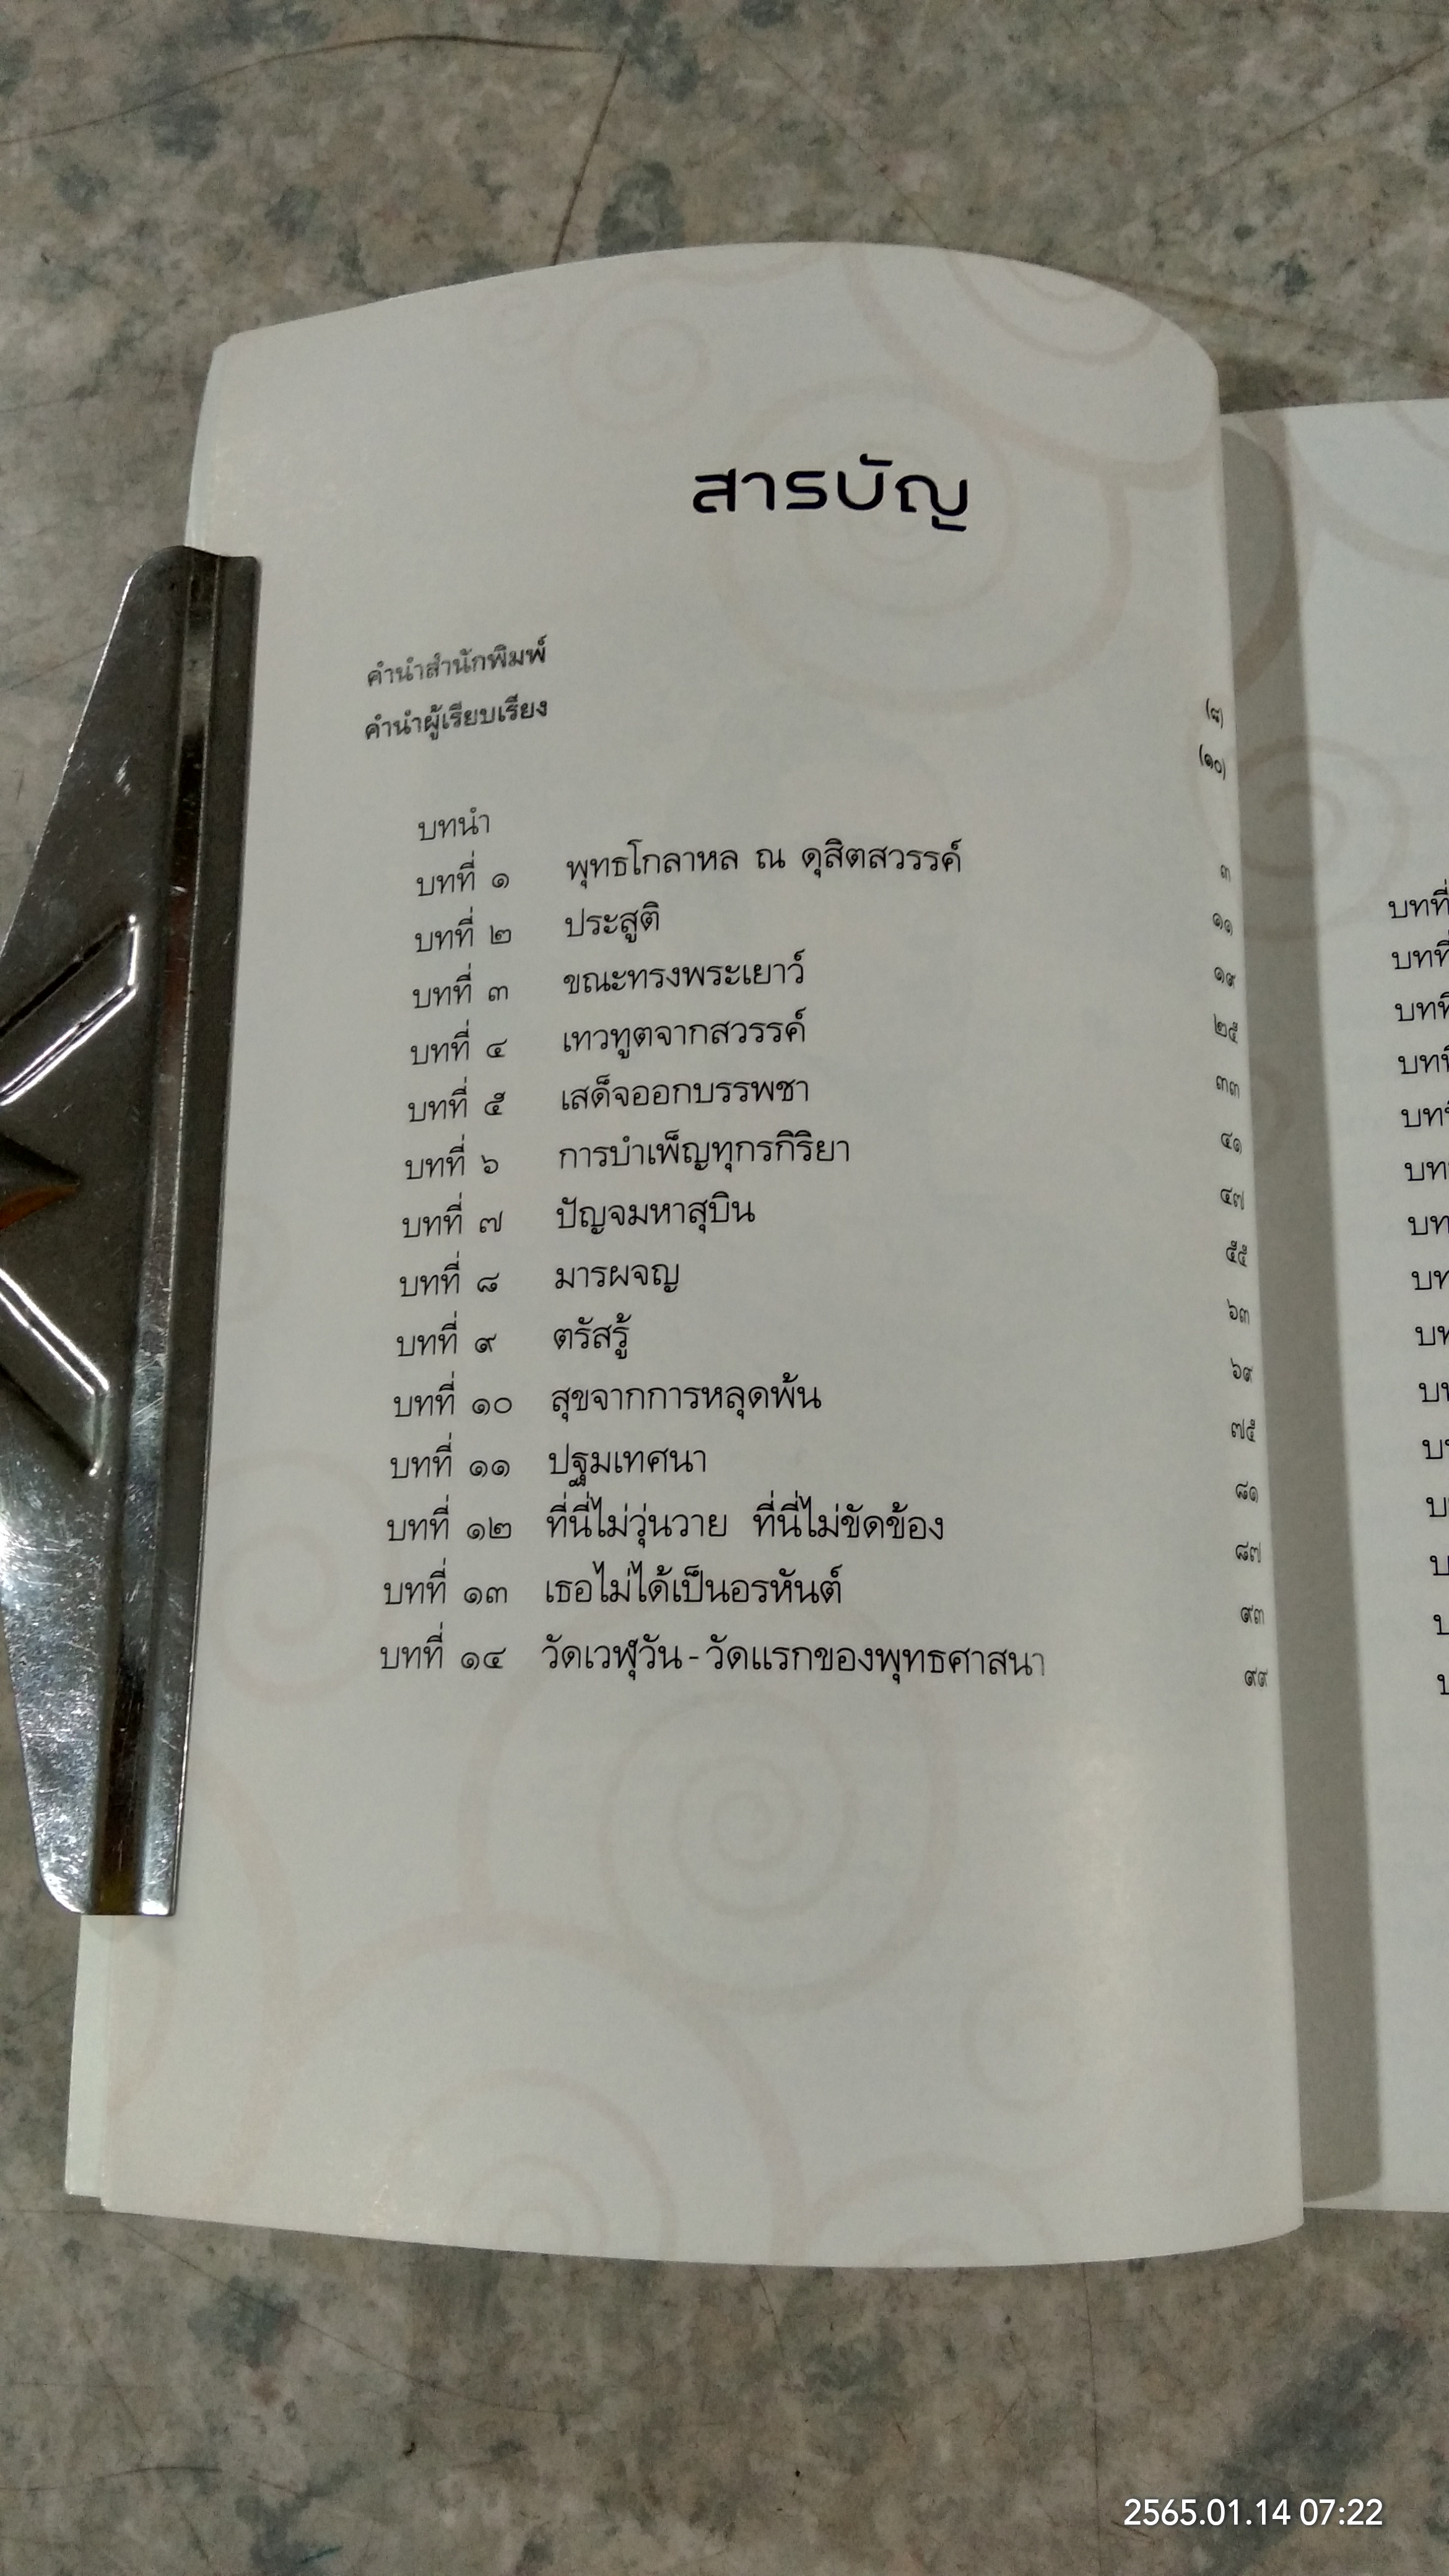 สารบัญ
คำนำสำนักพิมพ์ (๘)
คำนำผู้เรียบเรียง (๑๐)
บทนำ ๓
บทที่ ๑ พุทธโกลาหล ณ ดุสิตสวรรค์ ๑๑
บทที่ ๒ ประสูติ ๑๙
บทที่ ๓ ขณะทรงพระเยาว์ ๒๕
บทที่ ๔ เทวทูตจากสวรรค์ ๓๓
บทที่ ๕ เสด็จออกบรรพชา ๔๑
บทที่ ๖ การบำเพ็ญทุกรกิริยา ๔๗
บทที่ ๗ ปัญจมหาสุบิน ๕๕
บทที่ ๘ มารผจญ ๖๓
บทที่ ๙ ตรัสรู้ ๖๙
บทที่ ๑๐ สุขจากการหลุดพ้น ๗๕
บทที่ ๑๑ ปฐมเทศนา ๘๑
บทที่ ๑๒ ที่นี่ไม่วุ่นวาย ที่นี่ไม่ขัดข้อง ๘๗
บทที่ ๑๓ เธอไม่ได้เป็นอรหันต์ ๙๓
บทที่ ๑๔ วัดเวฬุวัน - วัดแรกของพุทธศาสนา ๙๙
บทที่
บทที่
บทที่
2565.01.14 07:22